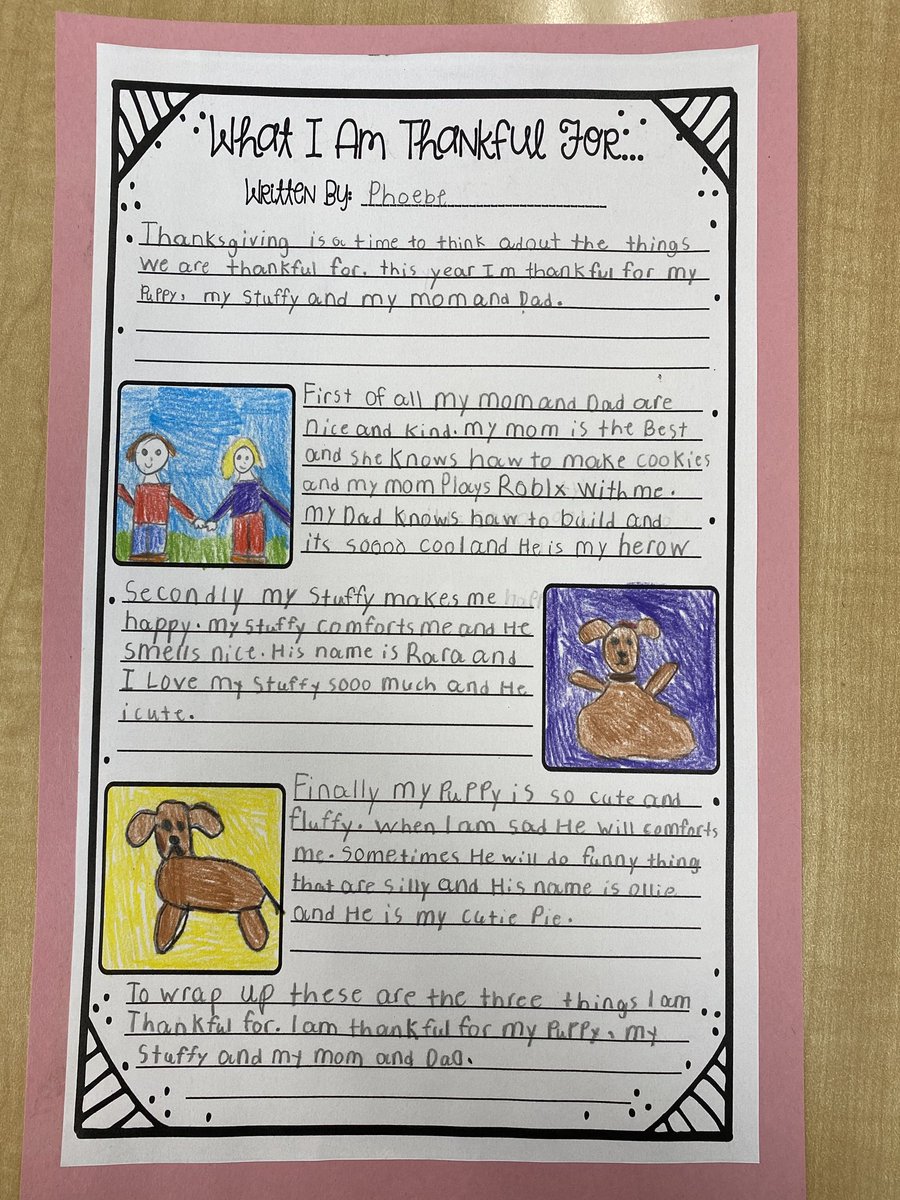 What I Am Thankful For...
Written By: Phoebe
Thanksgiving is a time to think adout the things
we are thankful for. this year Im thankful for my
Puppy, my stuffy and my mom and Dad.
First of all my mom and Dad are
nice and kind. my mom is the Best
and she knows haw to make cookies
and my mom Plays Roblx with me.
my Dad knows haw to build and
its soooo cool and He is my herow
Secondly my stuffy makes me
happy. my stuffy comforts me and He
smells nice. His name is Rara and
I Love my stuffy sooo much and He
icute.
Finally my Puppy is so cute and
fluffy. when I am sad He will comforts
me. sometimes He will do funny thing
that are silly and His name is ollie
and He is my cutie Pie.
To wrap up these are the three things I am
Thankful for. I am thankful for my Puppy, my
stuffy and my mom and Dad.